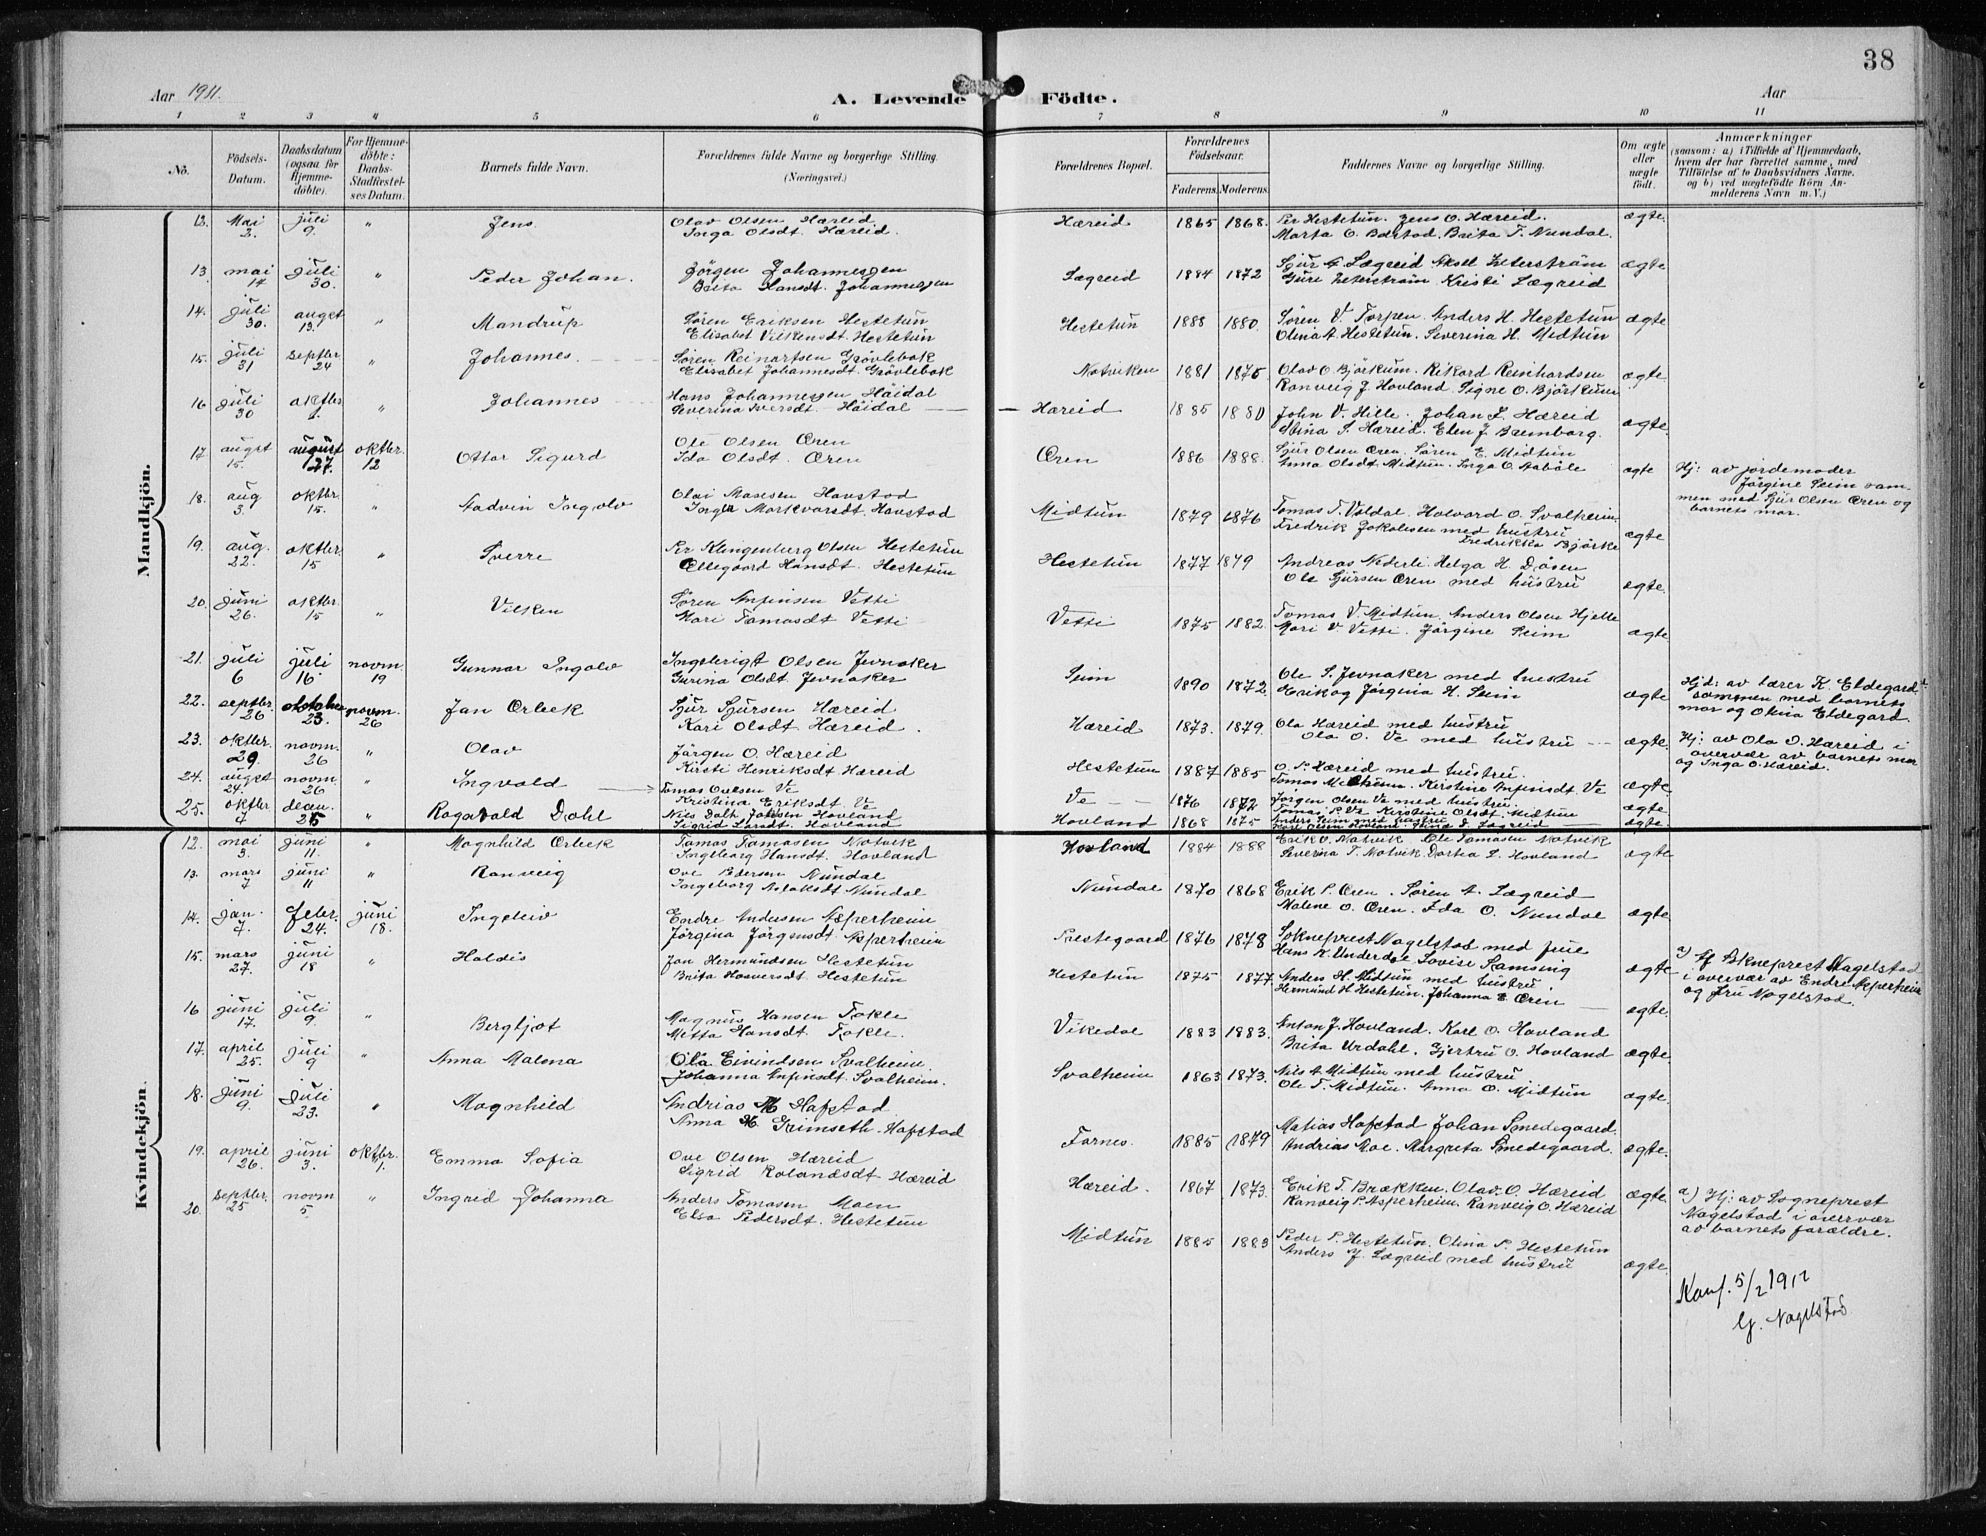 38
Aar 1911.
A. Levende Födte.
Aar
1 2 3 4 5 6 7 8 9 10 11
No.
Födsels-Datum.
Daabsdatum (ogsaa for Hjemme-döbte).
For Hjemme-döbte: Daabs-Stadfæstel-ses Datum.
Barnets fulde Navn.
Forældrenes fulde Navne og borgerlige Stilling. (Næringsvei.)
Forældrenes Bopæl.
Forældrenes Födselsaar.
Faderens. Moderens.
Faddernes Navne og borgerlige Stilling.
Om ægte eller uægte født.
Anmærkninger
(saasom: a) i Tilfælde af Hjemmedaab, hvem der har forrettet samme, med Tilföielse af to Daabsvidners Navne. og b) ved uægtefödte Börn An-melderens Navn m.V.)
Mandkjön.
12. Mai 3. juli 9. " Jens Olav Olsen Hæreid Inga Olsdt. Hæreid. Hæreid 1865 1868. Per Hestetun. Jens O. Hæreid. Marta O. Bolstad. Brita T. Nundal. ægte
13 mai 14 juli 30. " Peder Johan. Jörgen Johannessen Brita Hansdt. Johannessen Lægreid 1884 1872 Sjur A. Lægreid Aksel Zeterström Guri Zeterström Kristi Lægreid ægte
14. juli 30. augst 13. " Mandrup Søren Eriksen Hestetun Elisabet Vilkensdt. Hestetun Hestetun 1888 1880. Søren V. Torpen. Anders H. Hestetun Olina A. Hestetun. Severina H. Midtun ægte
15. juli 31 septbr 24 " Johannes. Søren Reinartsen Grövlebok Elisabet Johannesdt. Grövlebok Notviken 1881 1875 Olav O. Björkum. Rikard Reinhardsen Ranveig J. Hovland. Signe O. Björkum ægte
16 juli 30 oktbr 1. " Johannes Hans Johannessen Höidal Severina Iversdt. Höidal Hæreid 1885 1880 John V. Hille. Johan L. Hæreid Stina S. Hæreid. Elen J. Bremborg. ægte
17 augst 15. august 27. oktbr. 12 Ottar Sigurd Ole Olsen Øren Ida Olsdt. Øren Øren 1886 1888. Sjur Olsen Øren. Søren E. Midtun Anna Olsdt. Midtun. Inga O. Aabøle ægte Hj: av jordemoder Jörgine Seim sam-men med Sjur Olsen Øren og barnets mor.
18. aug 3. oktbr. 15. " Ladvin Ingolv Olai Masesen Havstad Inger Markvarsdt. Havstad Midtun 1879 1876 Tomas T. Voldal. Halvard O. Svalheim. Fredrik Jakobsen med hustru Fredrikka Björke ægte
19. aug. 22. oktbr. 15 " Sverre Per Klingenberg Olsen Hestetun Ellegaard Hansdt. Hestetun Hestetun 1877 1879 Andreas Nederli. Helga H. Døsen Ole Sjursen Øren med hustru ægte.
20. juni 26. oktbr. 15 " Vilken Søren Anfinsen Vetti Mari Tomasdt Vetti Vetti 1875 1882. Tomas V. Midtun. Anders Olsen Hjelle Mari V. Vetti. Jörgine Seim ægte
21. juli 6 juli 16. novm. 19 Gunnar Ingolv Ingebrigt Olsen Jevnaker Gurina Olsdt. Jevnaker Seim 1890 1872. Ole S. Jevnaker med hustru Erik og Jörgina H. Seim ægte Hjd: av lærer K. Eldegard sammen med barnets mor og Olina Eldegard.
22. septbr. 26 oktober 23. novm. 26 Jan Orbek Sjur Sjursen Hæreid Kari Olsdt Hæreid. Hæreid 1873. 1879. Ola Hæreid med hustru Ola O. Ve med hustru ægte. Hj: av Ola O. Hæreid i overvær av barnets mor og Inga O. Hæreid.
23. oktbr. 29. novm. 26 " Olav Jörgen O. Hæreid Kirsti Henriksdt Hæreid Hestetun 1887 1885 O. S. Hæreid med hustru. Tomas Midtun. Kirstine Anfinsdt Ve ægte.
24. augst 24. novm. 26 " Ingvald Tomas Ovesen Ve Kristina Eriksdt. Ve Ve 1876 1872 Jörgen Olsen Ve med hustru. Tomas P. Ve. Kirstine Olsdt. Midtun ægte
25. oktbr 7 decm. 25 " Ragnvald Dahl Nils Dalh Johsen Hovland Sigrid Larsdt. Hovland Hovland 1868 1875 Anders Seim med hustru ægte
Kvindekjön.
12. mai 3. juni 11. " Magnhild Orbek Tomas Tomasen Notvik Ingeborg Hansdt. Hovland Hovland 1884 1888 Erik O. Natvik Ole Tomasen Natvik Severina T. Natvik. Dortea L. Hovland ægte
13. mars 7 juni 11 " Ranveig Ove Pedersen Nundal Ingeborg Aslaksdt Nundal Nundal 1870 1868 Erik P. Øren. Søren A. Lægreid Malene O. Øren. Ida O. Nundal ægte
14. jan. 7. febr. 24. juni 18. Ingeleiv Endre Andersen Asperheim Jörgina Jörgensdt. Asperheim Prestegaard 1876 1878 Sokneprest Nagelstad med frue Hans K. Underdøl Lovise Ramsing ægte a) Af Sokneprest Nagelstad i overvær av Endre Asperheim og fru Nagelstad.
15. mars 27. juni 18 " Haldis Jan Hermundsen Hestetun Brita Haaversdt. Hestetun Hestetun 1875 1877. Anders H. Midtun med hustru Hermund H. Hestetun. Johanna E. Øren ægte.
16 juni 17. juli 9. " Bergljot Magnus Hansen Fokle Metta Hansdt. Fokle. Vikedal 1883 1883. Anton J. Hovland. Karl O. Hovland Brita Urdahl. Gjertru O. Hovland ægte
17. april 25. juli 9 " Anna Malena Ola Eivindsen Svalheim Johanna Anfinsdt. Svalheim. Svalheim 1863 1873. Nils A. Midtun med hustru Ole T. Midtun. Anna O. Midtun ægte.
18. juni 9. juli 23. " Magnhild Andrias M Hafstad Anna M. Grimseth Hafstad Fornes. 1885 1879 Matias Hafstad Johan Smedegaard. Andrias Moe. Margreta Smedegaard. ægte.
19. april 26. juni 3. oktbr. 1. Emma Sofia Ove Olsen Hæreid Sigrid Rolandsdt Hæreid Hæreid. 1867 1873. Erik T. Brækken. Olav O. Hæreid Ranveig P. Asperheim. Ranveig O. Hæreid ægte a) Hj: av Sogneprest Nagelstad i overvær av barnets forældre.
20. septbr. 25 novm 5 " Ingrid Johanna Anders Tomasen Moen Elsa Pedersdt. Hestetun Midtun 1885 1883 Peder P. Hestetun. Olina P. Hestetun Anders J. Lægreid med hustru ægte.
Konf. 5/2 1912
G. Nagelstad